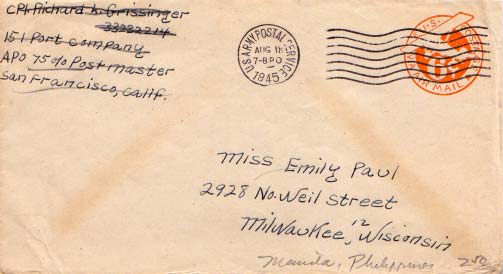 CPl Richard L. Grissinger
33232214
151 Port Company
APO 75 c/o Post master
San Francisco, Calif.
U.S. ARMY POSTAL SERVICE
AUG 18
7-8PO
1945
U.S. POSTAGE
6¢
VIA AIR MAIL
Miss Emily Paul
2928 No. Weil Street
Milwaukee, 12 Wisconsin
Manila, Philippines
250